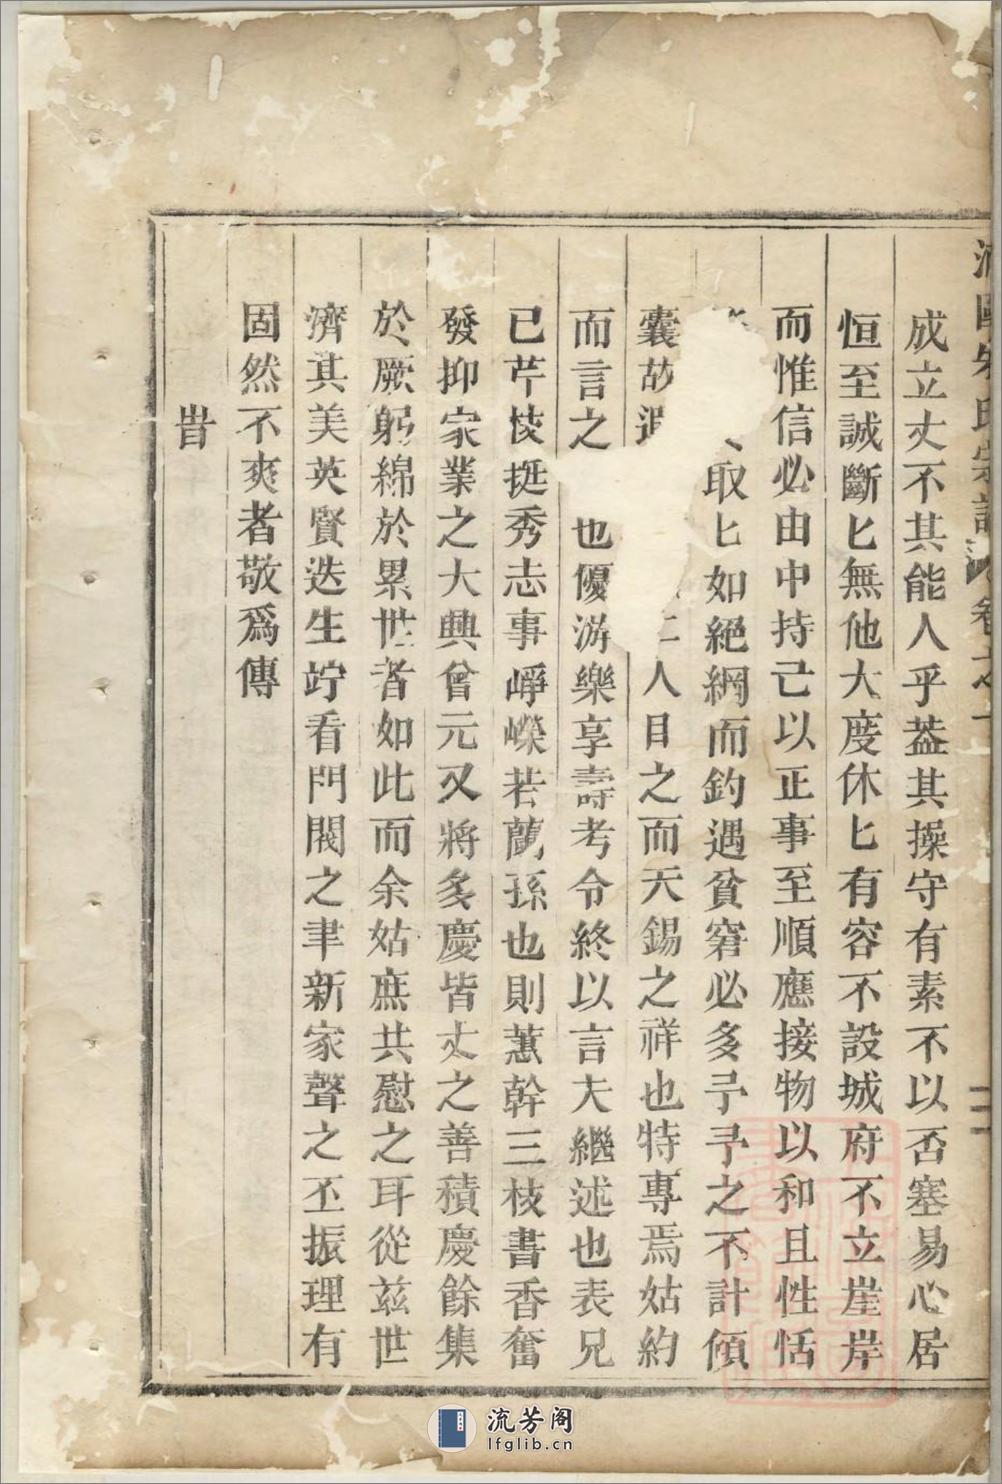 氏宗譜 卷之
成立丈不其能人乎蓋其操守有素不以否塞易心居
恒至誠斷匕無他大度休匕有容不設城府不立崖岸
而惟信必由中持己以正事至順應接物以和且性恬
取匕如絕綱而釣遇貧窘必多予予之不計傾
囊故 人目之而天錫之祥也特專焉姑約
而言之 也優游樂享壽考令終以言夫繼述也表兄
已芹枝挺秀志事崢嶸若蘭孫也則蕙幹三枝書香奮
發抑家業之大興曾元又將多慶皆丈之善積慶餘集
於厥躬綿於累世者如此而余姑庶共慰之耳從茲世
濟其美英賢迭生竚看門閥之聿新家聲之丕振理有
固然不爽者敬爲傳
旹
流芳阁
lfglib.cn